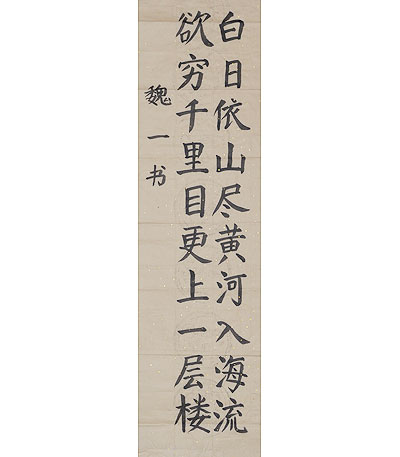 白日依山尽黄河入海流
欲穷千里目更上一层楼
魏一书